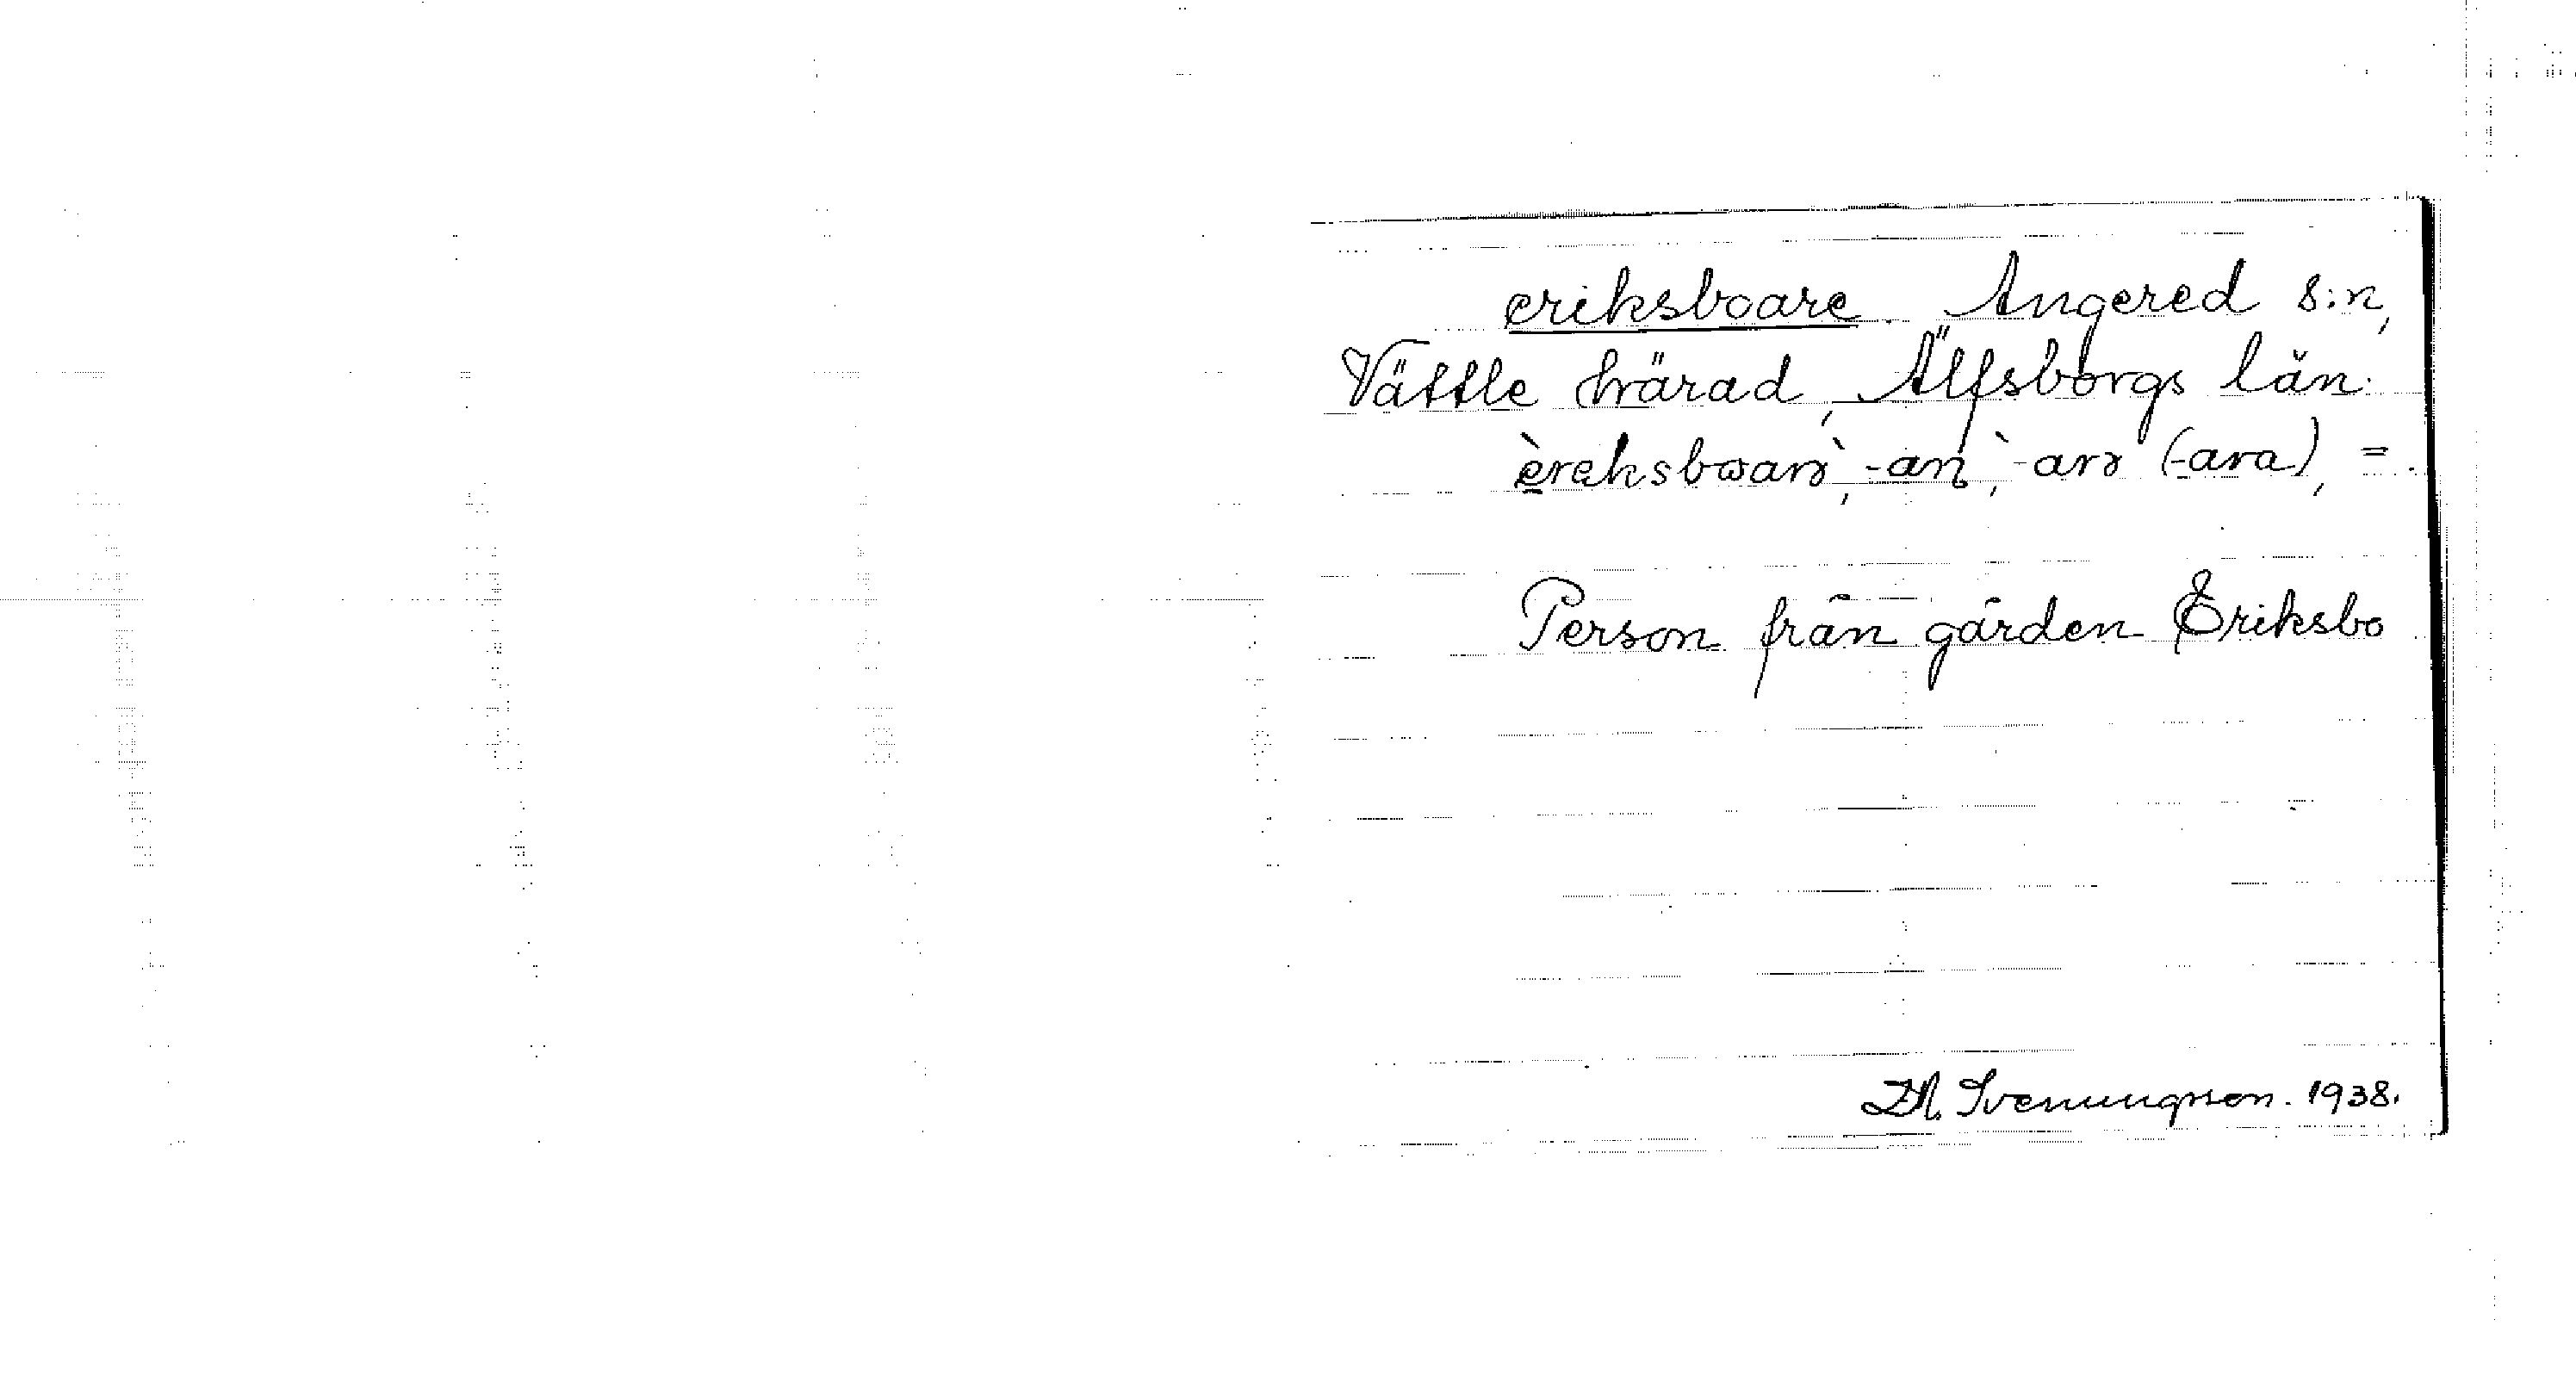 eriksboare. Angered s:n,
Vättle härad, Älfsborgs län.
èreksbωarə̀, -an, -arə̀ (-ara), =.
Person från gården Eriksbo
Svenungsson. 1938.